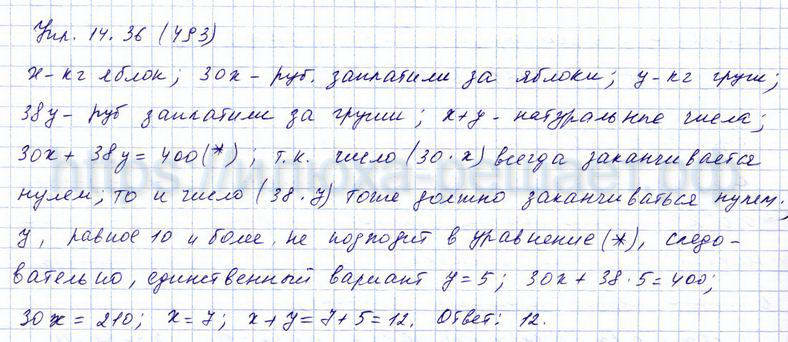 Упр. 14.36 (493)
x - кг яблок; 30x - руб. заплатили за яблоки; y - кг груш;
38y - руб заплатили за груши; x+y - натуральные числа;
30x + 38y = 400 (*); т.к. число (30·x) всегда заканчивается
нулем; то и число (38·y) тоже должно заканчиваться нулем;
y, равное 10 и более, не подходит в уравнение (*), следо-
вательно, единственный вариант y = 5; 30x + 38·5 = 400;
30x = 210; x = 7; x + y = 7 + 5 = 12. Ответ: 12.